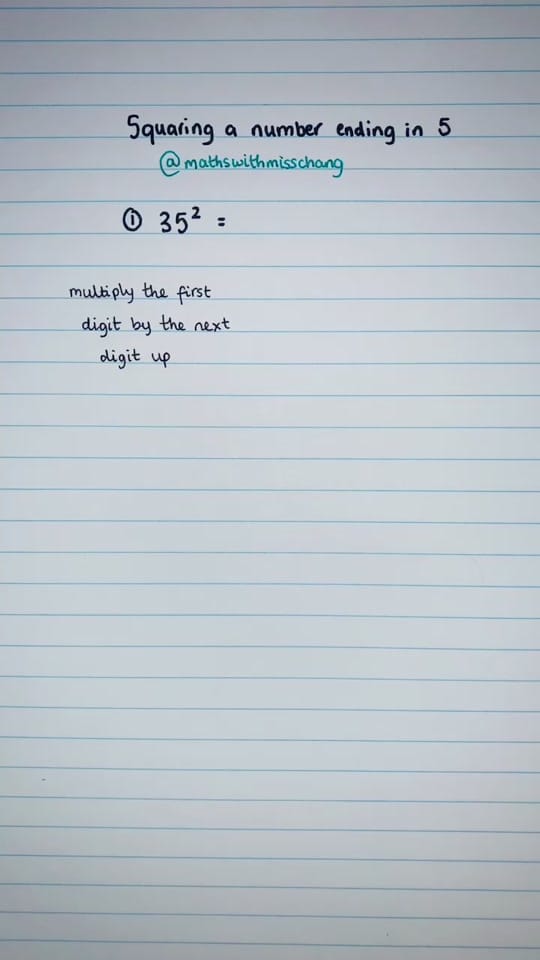 Squaring a number ending in 5
@mathswithmisschang
① 35² =
multiply the first
digit by the next
digit up